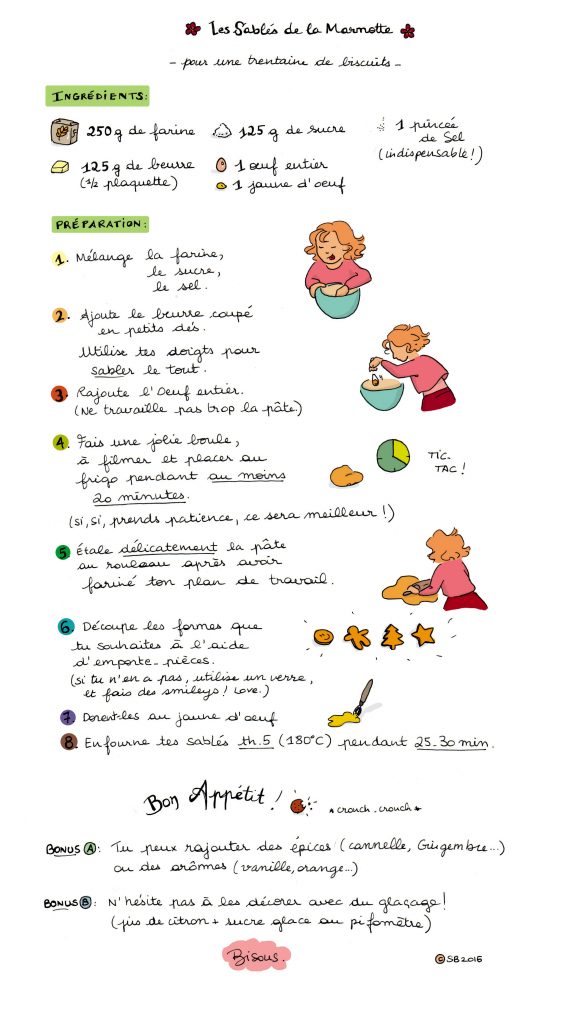 Les Sablés de la Marmotte
- pour une trentaine de biscuits -
INGRÉDIENTS:
250g de farine
125g de sucre
1 pincée de Sel
(indispensable!)
125g de beurre
(1/2 plaquette)
1 œuf entier
1 jaune d'œuf
PRÉPARATION:
1. Mélange la farine,
le sucre,
le sel.
2. Ajoute le beurre coupé
en petits dés.
Utilise tes doigts pour
sabler le tout.
3. Rajoute l'Oeuf entier.
(Ne travaille pas trop la pâte.)
4. Fais une jolie boule,
à filmer et placer au
frigo pendant au moins
20 minutes.
TIC-
TAC!
(si, si, prends patience, ce sera meilleur!)
5. Étale délicatement la pâte
au rouleau après avoir
fariné ton plan de travail.
6. Découpe les formes que
tu souhaites à l'aide
d'emporte-pièces.
(si tu n'en a pas, utilise un verre,
et fais des smileys! Love.)
7. Dorent-les au jaune d'oeuf
8. Enfourne tes sablés th.5 (180°C) pendant 25-30 min.
Bon Appétit!
* crouch-crouch *
BONUS A: Tu peux rajouter des épices (cannelle, Gingembre...)
ou des arômes (vanille, orange...)
BONUS B: N'hésite pas à les décorer avec du glaçage!
(jus de citron + sucre glace au pifomètre)
Bisous.
© SB2015